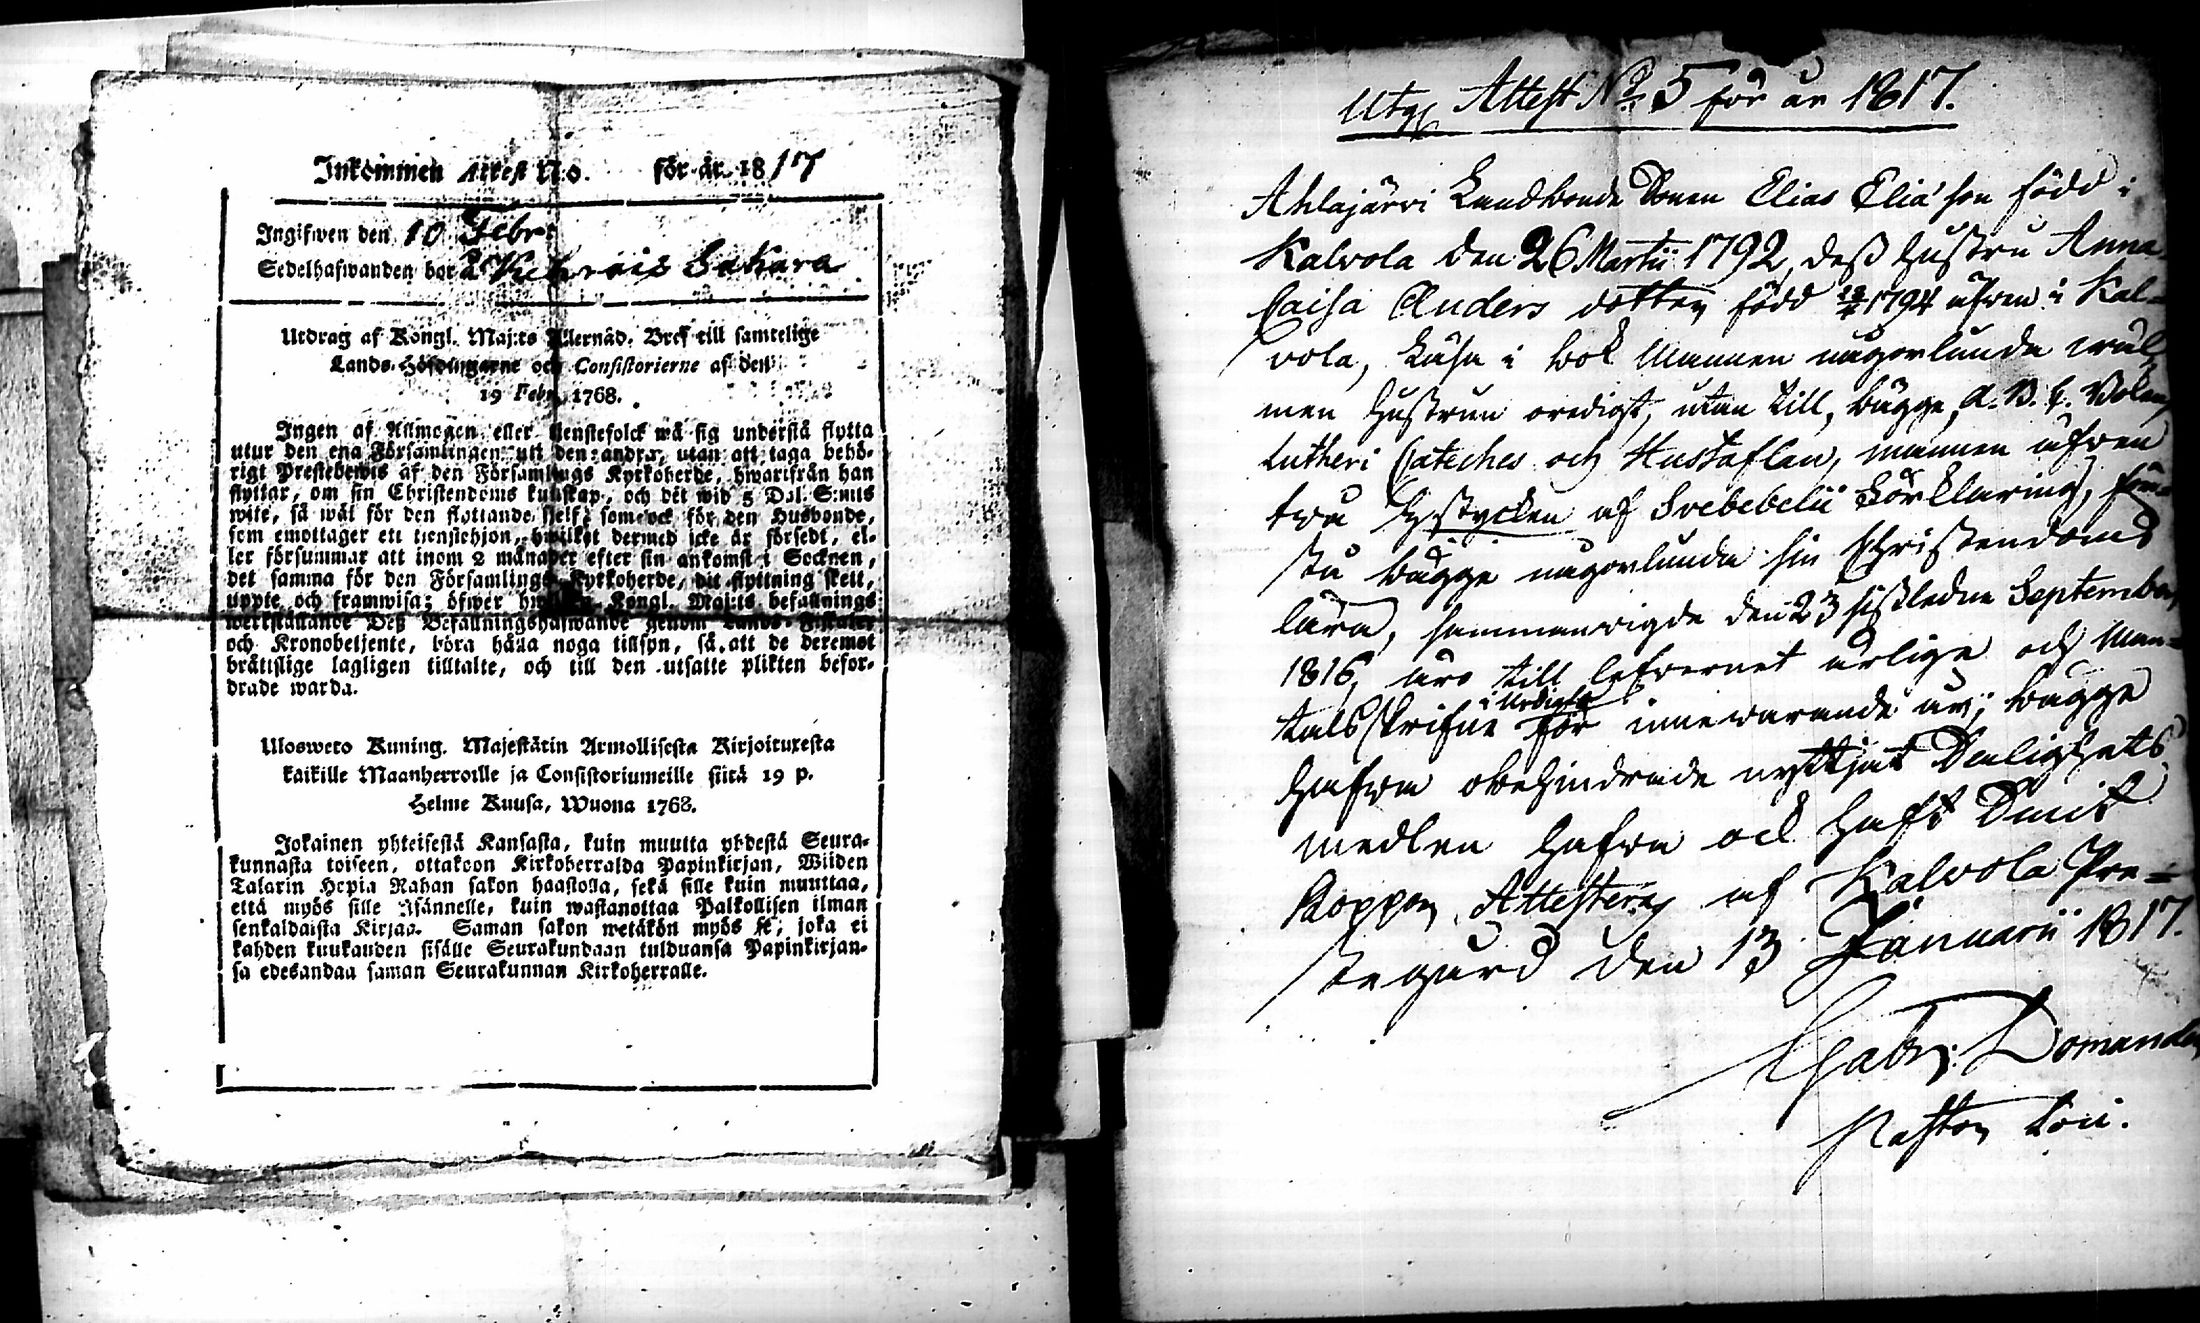 Inkommen Attest N:o. för år 1817
Ingifwen den 10 Febr:
Sedelhafwanden bor å Sakara
Utdrag af Kongl. Maj:ts Allernåd. Bref till samtelige
Lands-Höfdingarne och Consistorierne af den
19 Febr. 1768.
Ingen af Allmogen eller tjenstefolck må sig understå flytta
utur den ena Församlingen utt den andra, utan att taga behö-
rigt Prestebewis af den Församlings Kyrkoherde, hwarifrån han
flyttar, om sin Christendoms kunskap, och det wid 5 Dal. S:mts
wite, så wäl för den flyttande sjelf, som ock för den Husbonde,
som emottager ett tienstehjon, hwilket dermed icke är försedt, el-
ler försummar att inom 2 månader efter sin ankomst i Socknen,
det samma för den Församlings Kyrkoherde, dit flyttning skett,
uppte och framwisa; öfwer hwilken Kongl. Maj:ts befallnings
werkställande Deß Befallningshafwande genom Lands-Fiskaler
och Kronobetjente, böra hålla noga tillsyn, så att de deremot
brätislige lagligen tilltalte, och till den utsatte plikten befor-
drade warda.
Ulosweto Kuning. Majestätin Armollisesta Kirjoituxesta
kaikille Maanherroille ja Consistoriumeille siitä 19 p.
Helme Kuusa, Wuona 1768.
Jokainen yhteisestä Kansasta, kuin muutta yhdestä Seura-
kunnasta toiseen, ottakoon Kirkoherralda Papinkirjan, Wiiden
Talarin Hopia Rahan sakon haastolla, sekä sille kuin muuttaa,
että myös sille Isännelle, kuin wastanottaa Palkollisen ilman
senkaldaista Kirjaa. Saman sakon wetäkön myös se, joka ei
kahden kuukauden sisälle Seurakundaan tulduansa Papinkirjan-
sa edesandaa saman Seurakunnan Kirkoherralle.
Utg Attest No 5 för år 1817.
Ahlajärvi Landbonde Sonen Elias Elia'son född i
Kalvola den 26 Martii 1792, deß hustru Anna
Caisa Anders dotter född 1794 äfven i Kal=
vola, Läsa i bok Mannen någorlunda wäl
men hustrun oredigt, utan till, bägge, A. B. C. Boken,
Lutheri Cateches och Hustaflan, mannen äfven
två Hstycken af Svebebelii Förklaring, för=
stå bägge någorlunda sin Christendoms
lära, sammanvigde den 23 sistledne September
1816, äro till lefvernet ärlige och Man=
talsskrifne för innewarande år; bägge
hafva obehindrade nyttjat Salighets
medlen hafva ock haft
Koppor, Attesterar af Kalvola Pre=
stegård den 13 Januarii 1817.
Gabr: Domander
Pastor Loci.